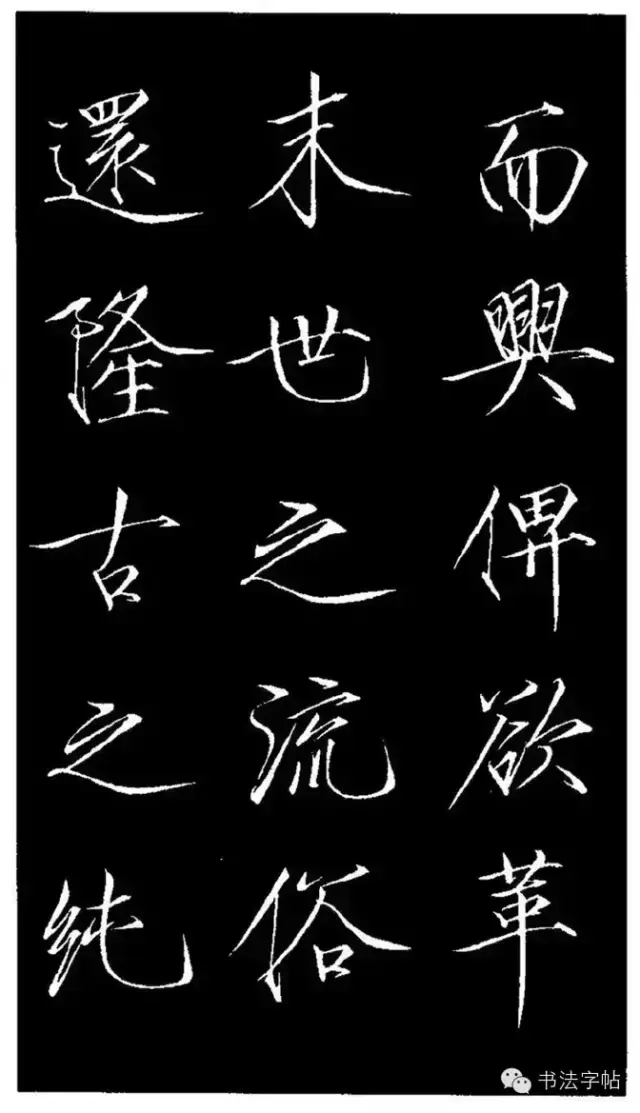 而興俾欲革
末世之流俗
還隆古之純
书法字帖